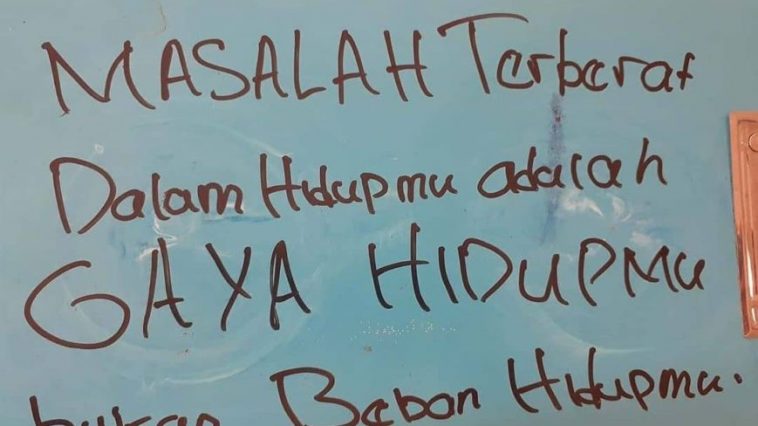 MASALAH Terberat
Dalam Hidupmu adalah
GAYA HIDUPMU
bukan Beban Hidupmu.